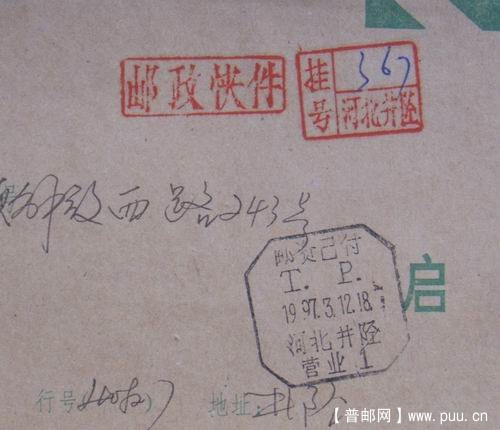 邮政快件
挂号 367
河北井陉
西路243号
邮资已付
T. P.
1997.3.12.18
河北井陉
营业 1
启
行号
地址:井陉
【普邮网】www.puu.cn